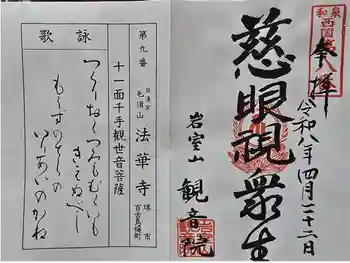 和泉
西国第八
奉拝
令和八年四月二十二日
慈眼視衆生
岩室山
観音院
第九番
日蓮宗
法華寺
堺市
十一面千手観世音菩薩
詠歌
つくりおくつみもむくいも
きえぬべし
もずのてらの
いりあいのかね